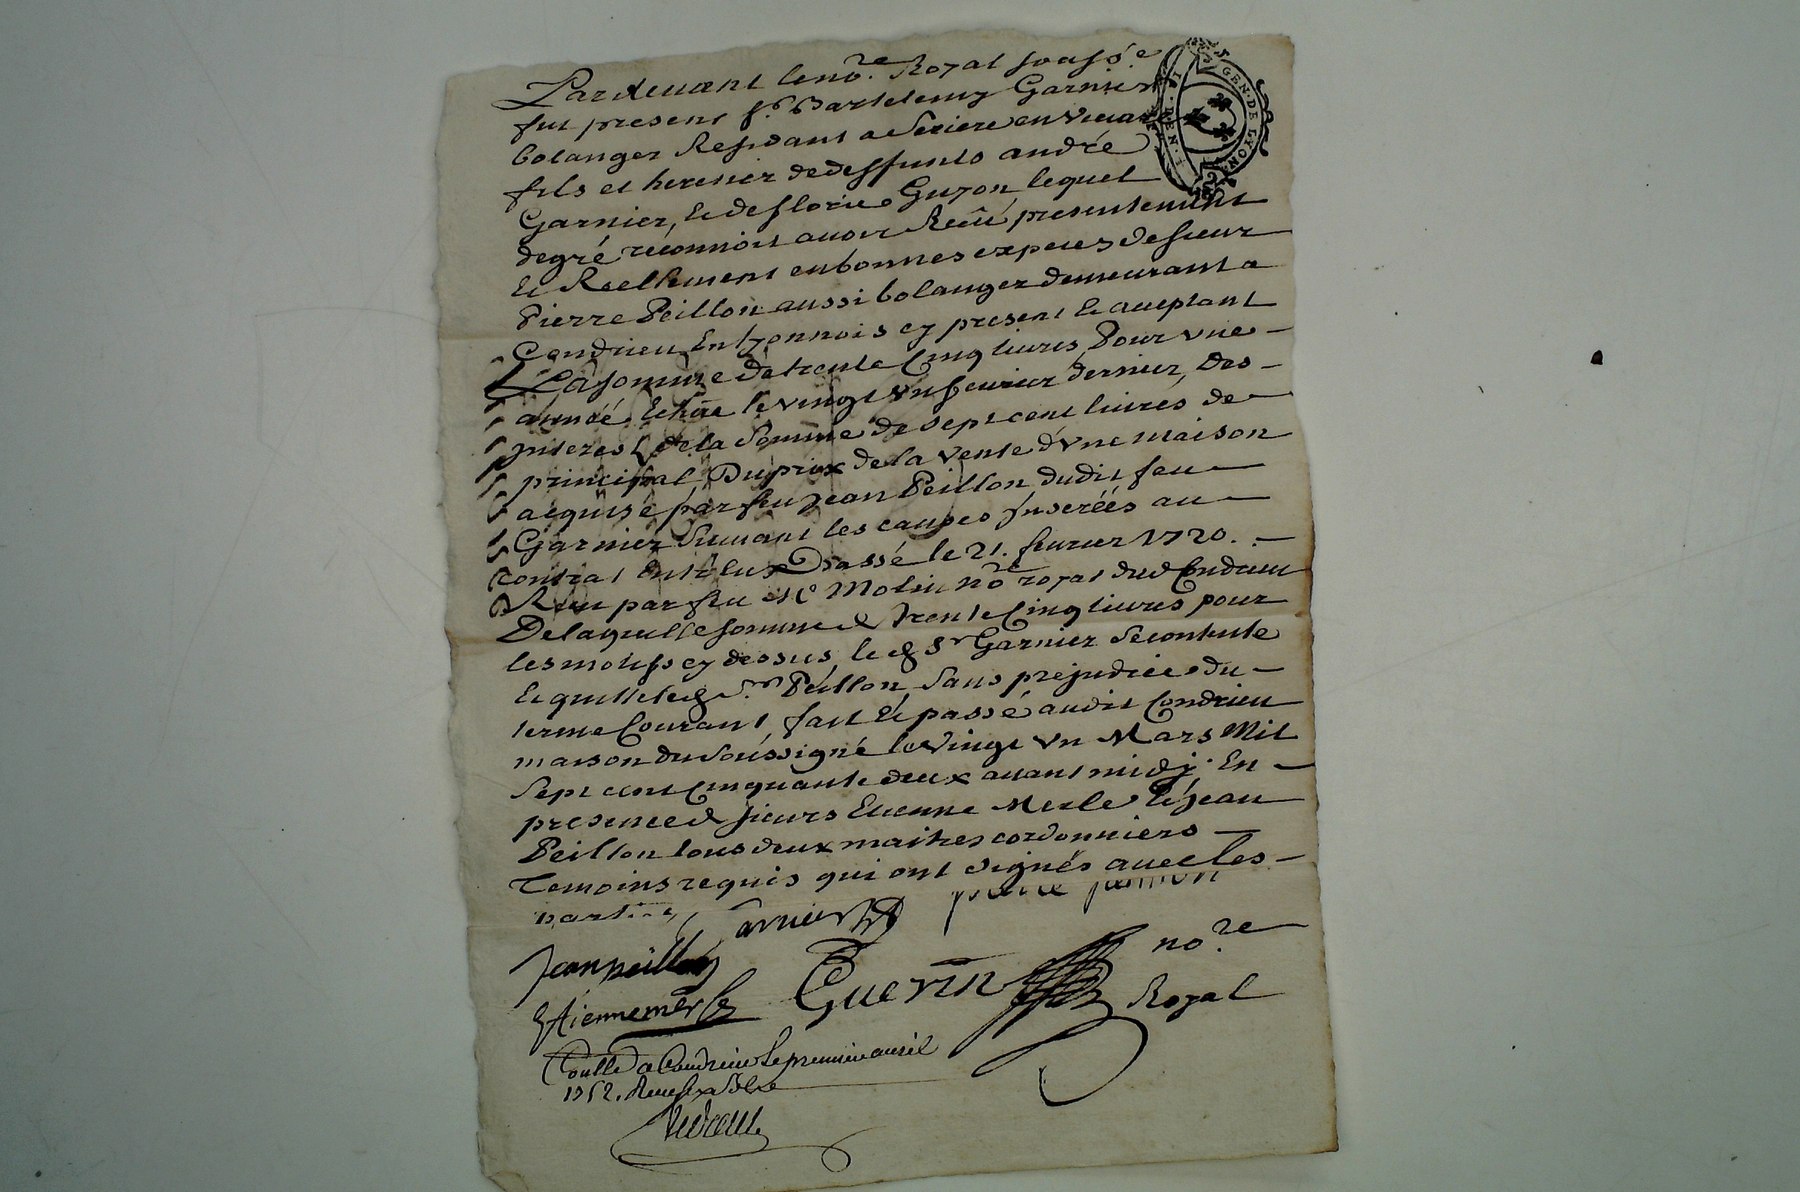 Pardeuant le no.re Royal soussé
fut present s.r Bartelemy Garnier
bolanger Residant a Seriere en Viuarez
fils et heretier de deffunts andré
Garnier, et de florie Guyon lequel
degré reconnoit auoir Recû presentement
et Reellement en bonnes especes de sieur
Pierre Peillon aussi bolanger demeurant a
Condrieu En lyonnois cy present et aceptant
La somme de trente Cinq liures Pour vne
année Echüe le vingt vn feurier dernier, Des
jnterest de la Somme de sept cent liures de
principal Du prix de la vente d'vne maison
acquise par feu Jean Peillon dudit feu
Garnier Suiuant les causes jnserées au
contrat Entr'eux Passé le 21. feurier 1720.
Receu par feu M.e Molin no.re royal dud Condrieu
De laquelle somme de trente Cinq liures pour
les motifs cy dessus, le d. S.r Garnier se contente
et quitte led. S.r Peillon, Sans prejudice du
terme Courant, fait et passé audit Condrieu
maison du soussigné le Vingt vn Mars Mil
Sept cent Cinquante deux auant midy. En
presence de sieurs Etienne Merle et jean
Peillon tous deux maitres cordonniers
Temoins requis qui ont signés auec les
parties,
Garnier
Jean peillon
Guerin no.re
Etienne merle
Royal
Conllé a Condrieu Le premier auril
1752. Receu six sols
GEN. DE LYON.